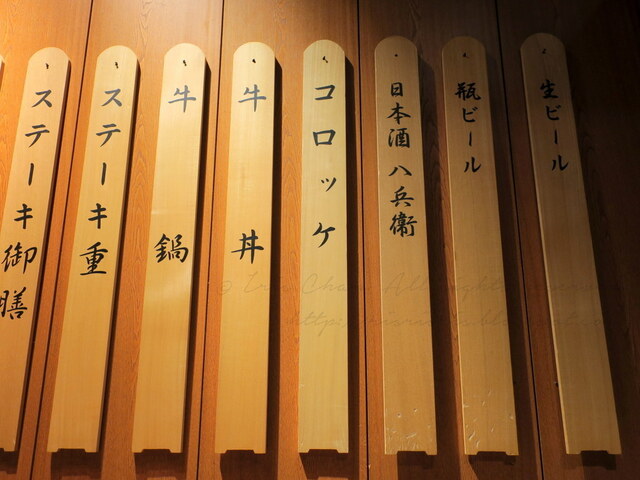 生ビール
瓶ビール
日本酒 八兵衛
コロッケ
牛丼
牛鍋
ステーキ重
ステーキ御膳